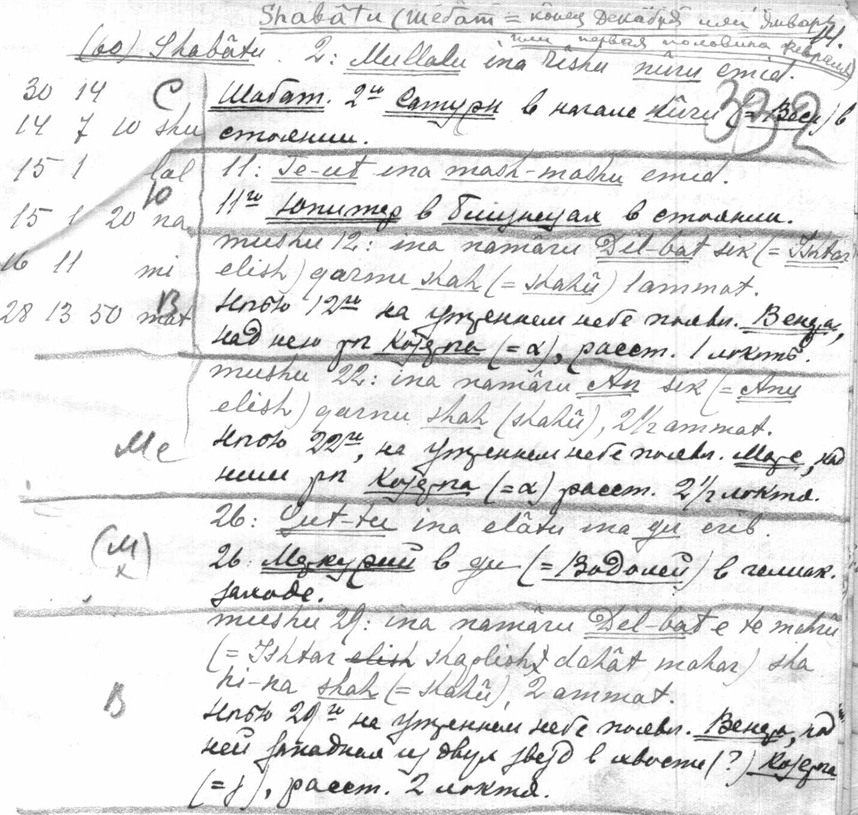 Shabâtu (Шебат = конец декабря или январь
или первая половина февраля)
14.
(60) Shabâtu. 2: Mullalu ina rêshu nûru emid.
332
30 14 С Шабат. 2го Сатурн в начале nûru (= Весы) в
14 7 10 shu стоянии.
15 1 lal 11: Te-ut ina mash-mashu emid.
15 1 20 na Ю 11го Юпитер в близнецах в стоянии.
mushu 12: ina namâru Dil-bat sik (= Ishtar
16 11 mi elish) qarnu shah (= shahû) 1 ammat.
28 13 50 mat В Ночью 12го на утреннем небе появл. Венера,
над нею рог Козерога (= α), расст. 1 локоть.
mushu 22: ina namâru An sik (= Anu
elish) qarnu shah (shahû), 2½ ammat.
Ме Ночью 22го, на утреннем небе появл. Марс, над
ним рог Козерога (= α) расст. 2½ локтя.
26: Gut-tu ina elâtu ina gu erib.
(М) 26. Меркурий в gu (= Водолей) в гелиак.
заходе.
mushu 29: ina namâru Dil-bat e te mahrû
(= Ishtar elish shaplish dahât mahar) sha
hi-na shah (= shahû), 2 ammat.
В Ночью 29го на утреннем небе появл. Венера, над
ней западная из двух звезд в хвосте (?) Козерога
(= γ), расст. 2 локтя.